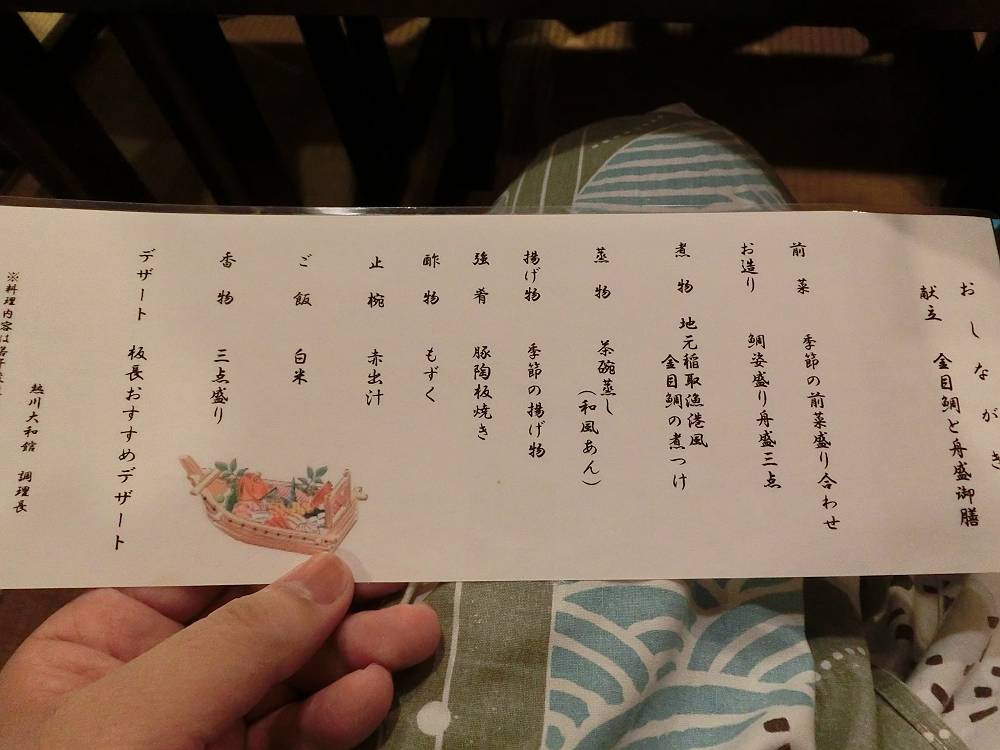 おしながき
献立　金目鯛と舟盛御膳
前菜　季節の前菜盛り合わせ
お造り　鯛姿盛り舟盛三点
煮物　地元稲取漁港風
金目鯛の煮つけ
蒸物　茶碗蒸し
（和風あん）
揚げ物　季節の揚げ物
強肴　豚陶板焼き
酢物　もずく
止椀　赤出汁
ご飯　白米
香物　三点盛り
デザート　板長おすすめデザート
熱川大和館　調理長
※料理内容は若干